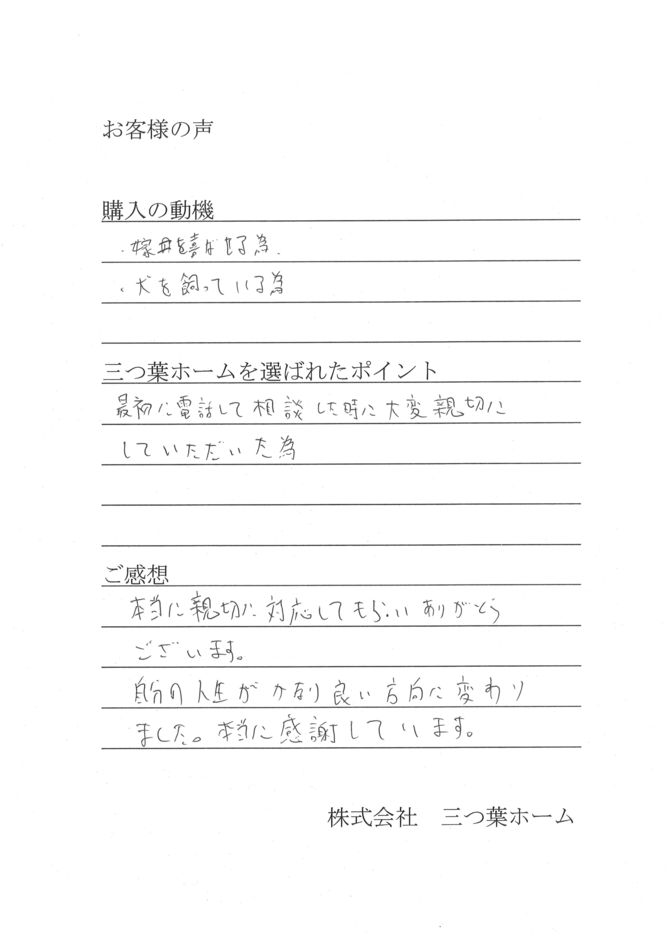 お客様の声
購入の動機
・嫁母を喜ばせる為.
・犬を飼っている為
三つ葉ホームを選ばれたポイント
最初に電話して相談した時に大変親切に
していただいた為
ご感想
本当に親切に対応してもらいありがとう
ございます。
自分の人生がかなり良い方向に変わり
ました。本当に感謝しています。
株式会社 三つ葉ホーム